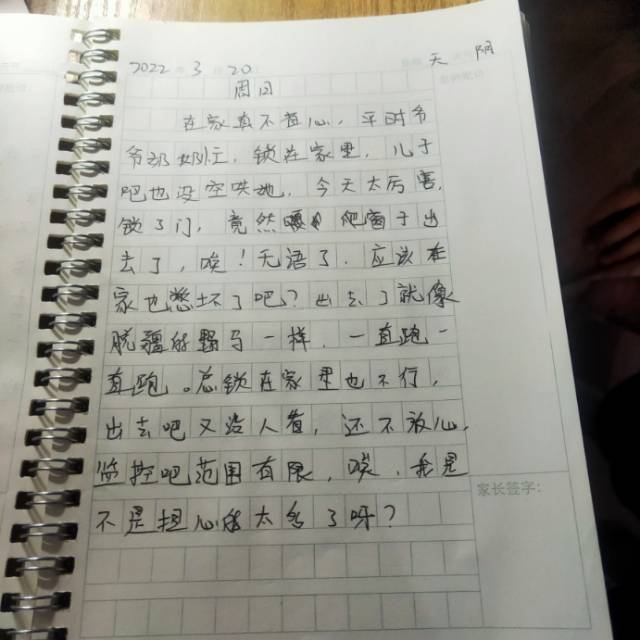 2022 年 3 月 20 天 阴
周日
在家真不省心，平时爷
爷奶奶忙，锁在家里，儿子
吧也没空哄她，今天太厉害，
锁了门，竟然 爬窗子出
去了，唉！无语了．应该在
家也憋坏了吧？出去了就像
脱疆的野马一样，一直跑一
直跑。总锁在家里也不行，
出去吧又没人看，还不放心，
监控吧范围有限，唉，我是
不是担心的太多了呀？
家长签字：